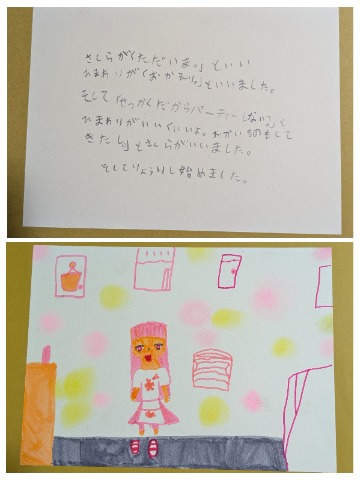 さくらが「ただいま。」といい
ひまわりが「おかえり。」といいました。
そして「せっかくだからパーティーしない?」と
ひまわりがいい「いいよ。おかいものもして
きたし」とさくらがいいました。
そしてりょうりし始めました。